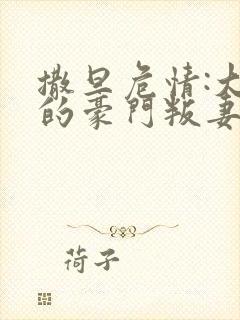 撒旦危情:大
的豪門叛妻
荷子